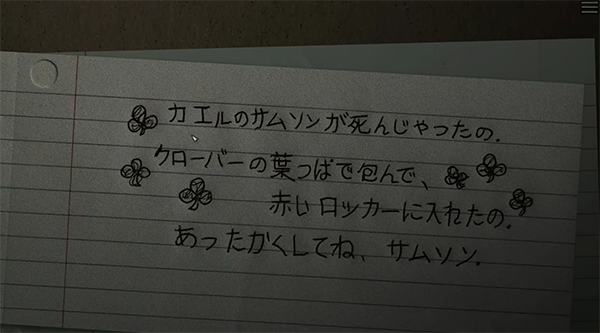 カエルのサムソンが死んじゃったの.
クローバーの葉っぱで包んで、
赤いロッカーに入れたの.
あったかくしてね、サムソン.